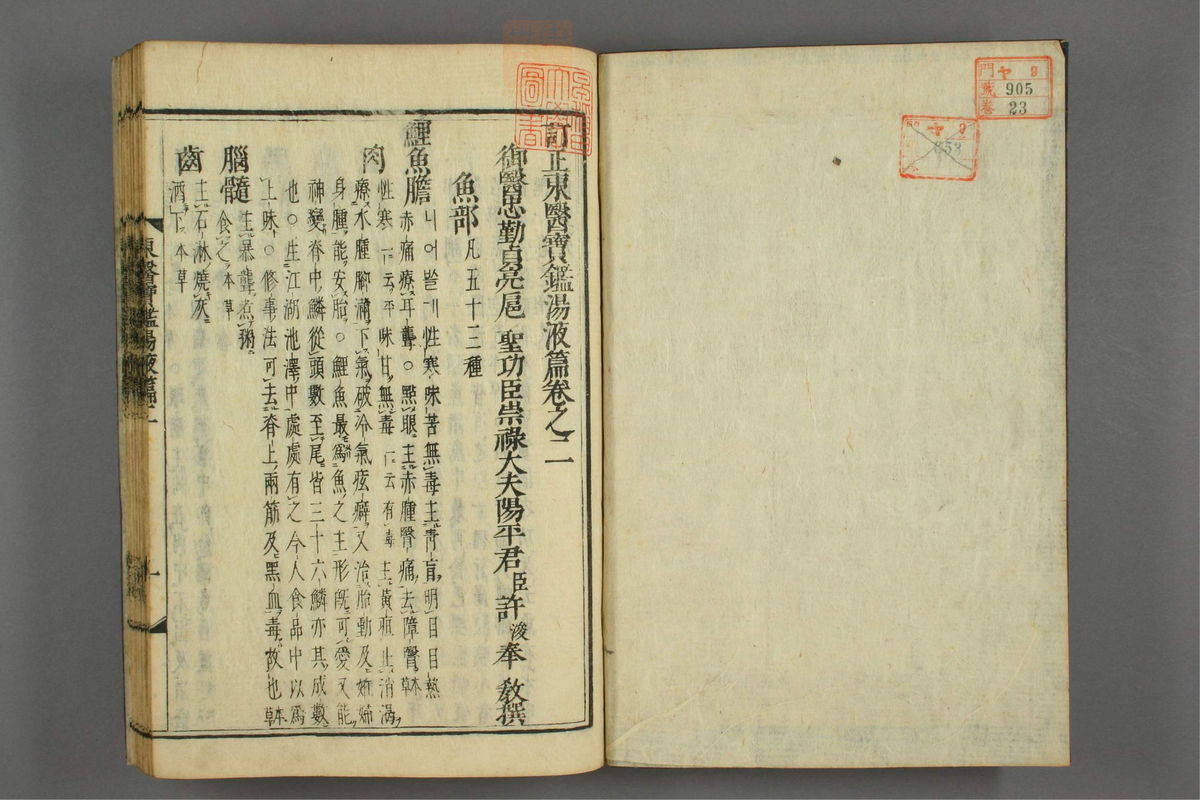 門 ヤ 9
號 905
卷 23
ヤ 9
853
訂正東醫寶鑑湯液篇卷之二
御醫忠勤貞亮扈 聖功臣崇祿大夫陽平君臣許浚奉 敎撰
魚部 凡五十三種
鯉魚膽 니어쁠게 性寒味苦無毒主靑盲明目目熱
赤痛療耳聾○點眼主赤腫瞖痛去障瞖 本草
肉 性寒 一云平 味甘無毒 一云有毒 主黃疸止消渴
療水腫脚滿下氣破冷氣痃癖又治胎動及姙婦
身腫能安胎○鯉魚最爲魚之主形旣可愛又能
神變脊中鱗從頭數至尾皆三十六鱗亦其成數
也○生江湖池澤中處處有之今人食品中以爲
上味○修事法可去脊上兩筋及黑血毒故也 本草
腦髓 主暴聾煮粥
食之 本草
齒 主石淋燒灰
酒下 本草
東醫寶鑑湯液篇二
一